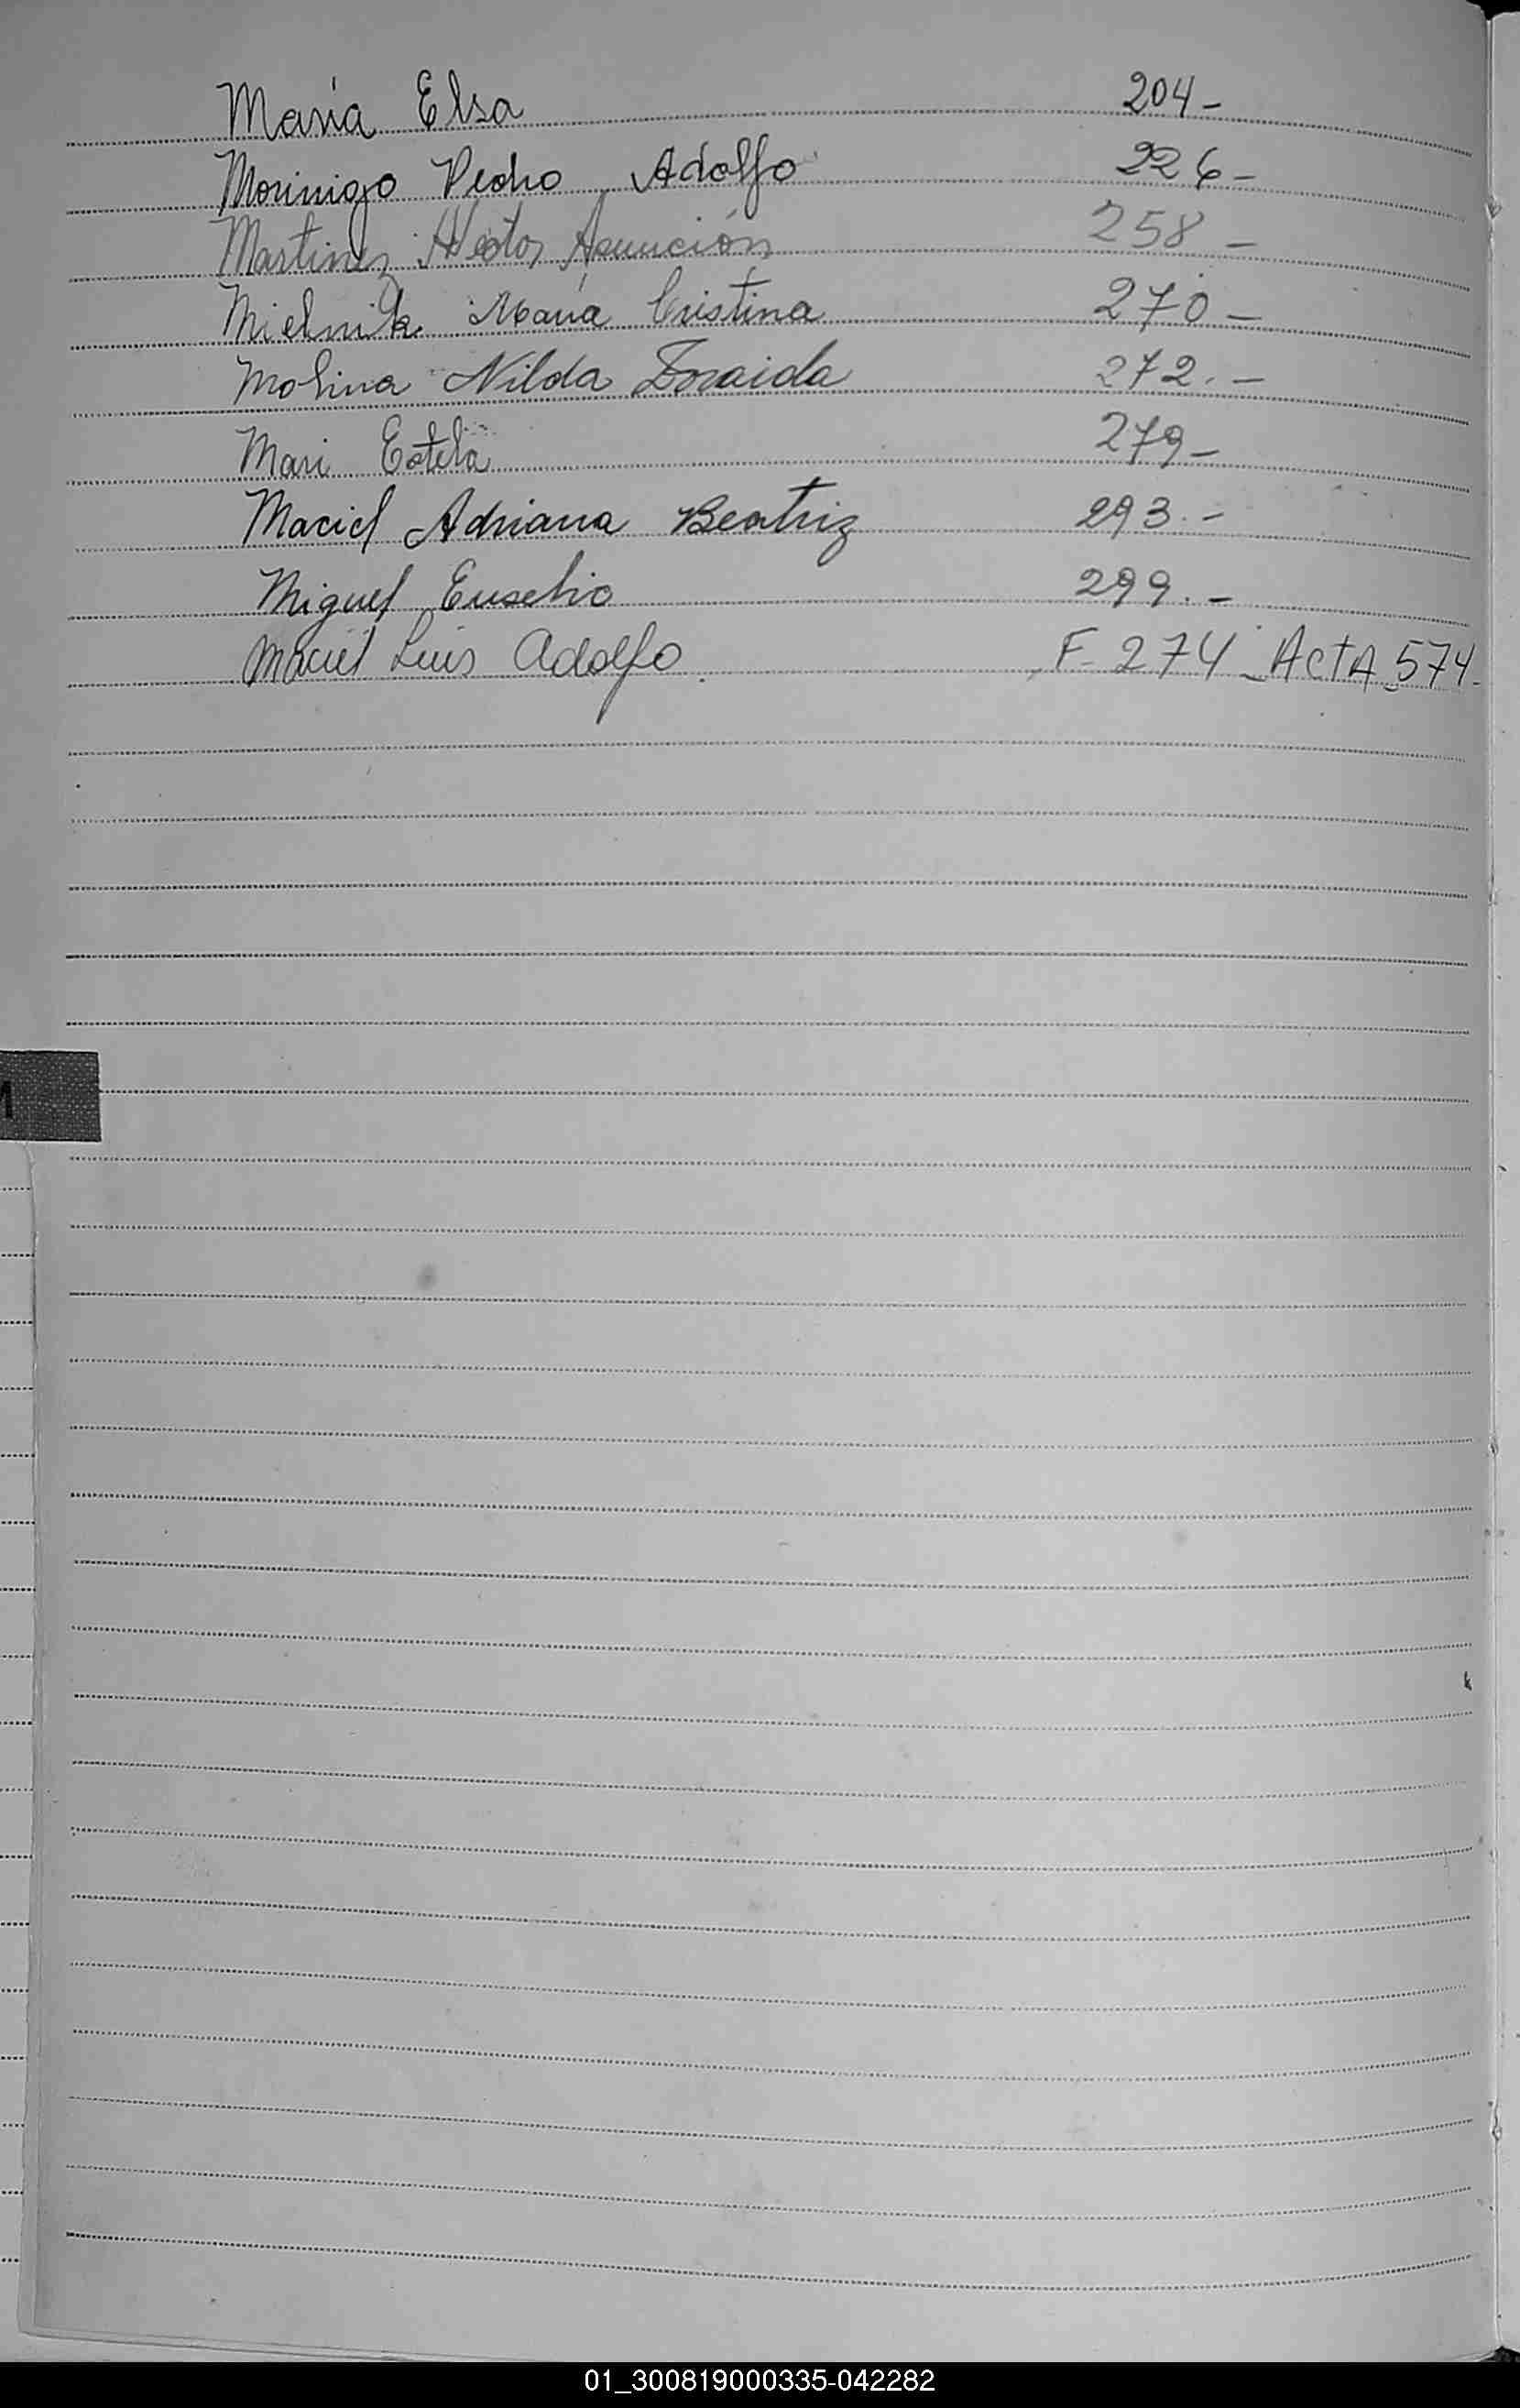 María Elsa 204-
Morinigo Pedro Adolfo 226-
Martinez Héctor Asunción 258-
Mielnik María Cristina 270-
Molina Nilda Zoraida 272.-
Mari Estela 279-
Maciel Adriana Beatriz 293.-
Miguel Eusebio 299.-
Maciel Luis Adolfo F-274-ActA 574-
01_300819000335-042282